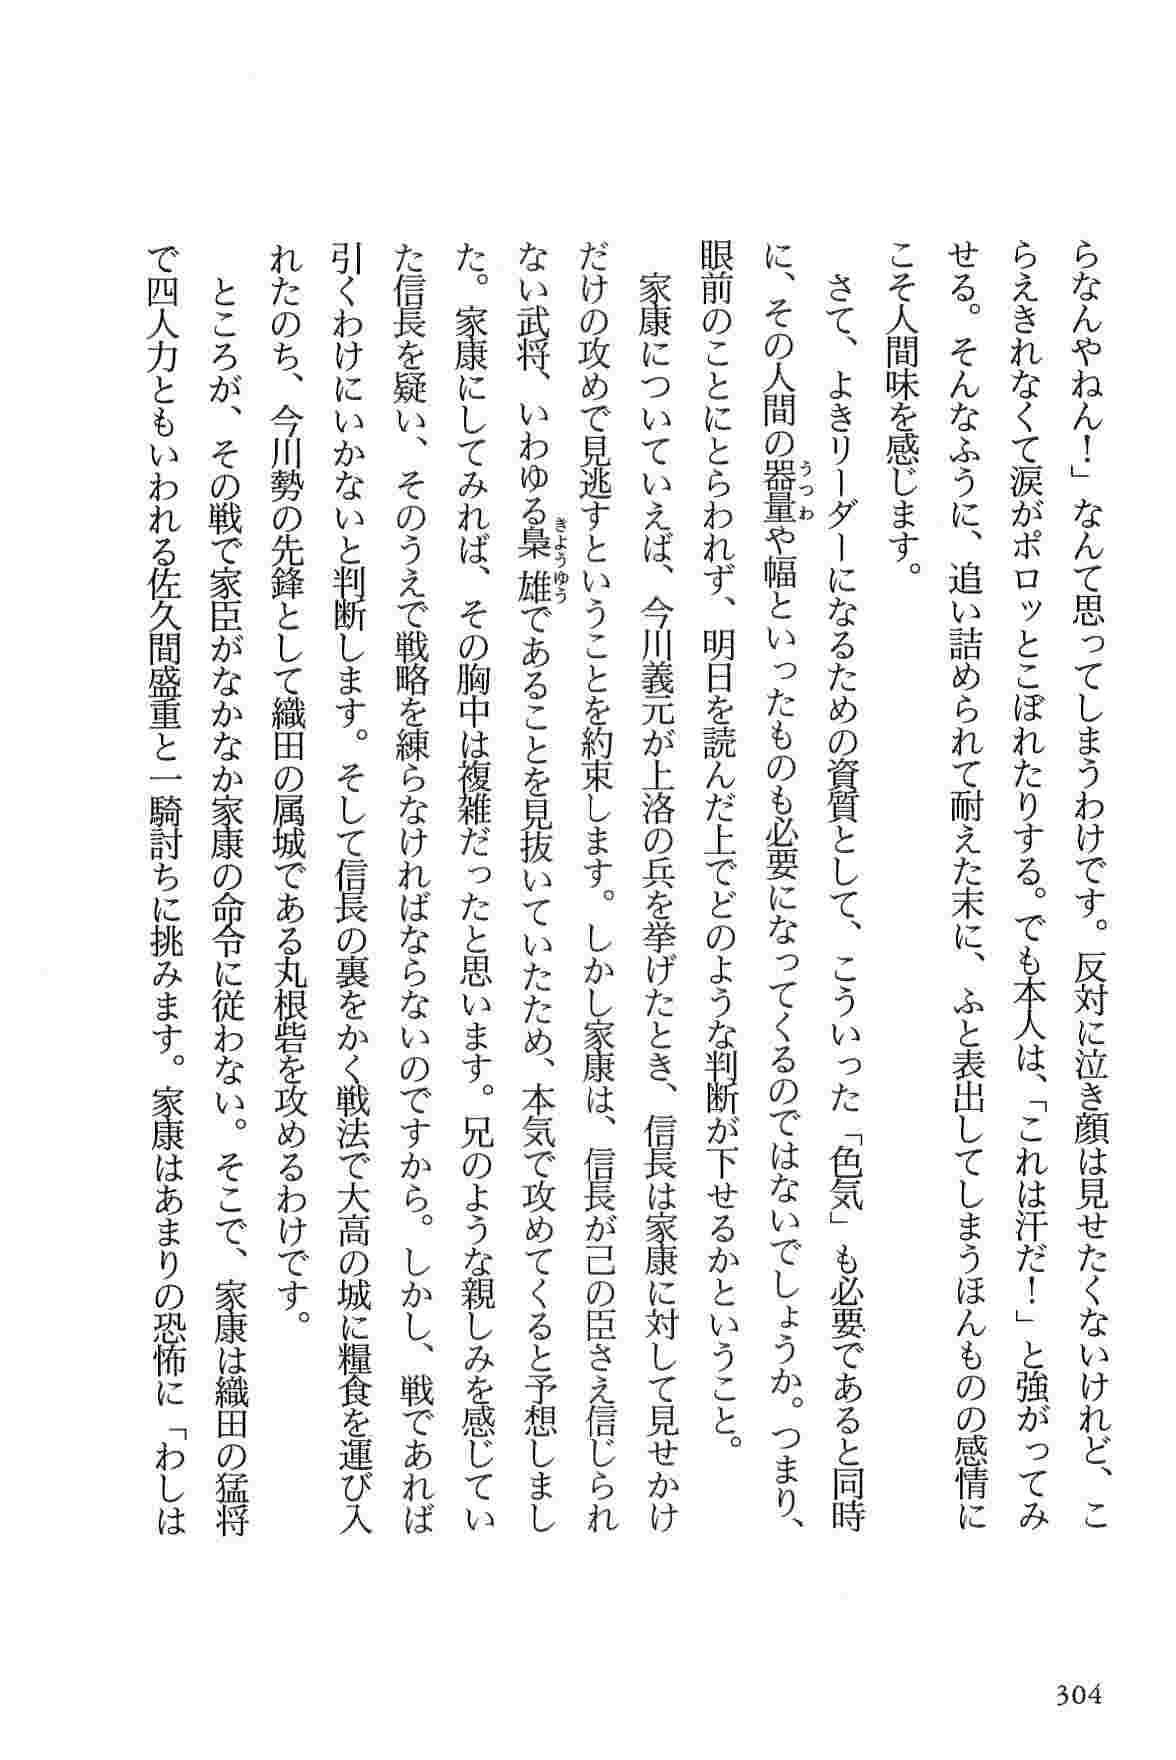 らなんやねん！」なんて思ってしまうわけです。反対に泣き顔は見せたくないけれど、こ
らえきれなくて涙がポロッとこぼれたりする。でも本人は、「これは汗だ！」と強がってみ
せる。そんなふうに、追い詰められて耐えた末に、ふと表出してしまうほんものの感情に
こそ人間味を感じます。
さて、よきリーダーになるための資質として、こういった「色気」も必要であると同時
に、その人間の器量や幅といったものも必要になってくるのではないでしょうか。つまり、
うつわ
眼前のことにとらわれず、明日を読んだ上でどのような判断が下せるかということ。
家康についていえば、今川義元が上洛の兵を挙げたとき、信長は家康に対して見せかけ
だけの攻めで見逃すということを約束します。しかし家康は、信長が己の臣さえ信じられ
ない武将、いわゆる梟雄であることを見抜いていたため、本気で攻めてくると予想しまし
きようゆう
た。家康にしてみれば、その胸中は複雑だったと思います。兄のような親しみを感じてい
た信長を疑い、そのうえで戦略を練らなければならないのですから。しかし、戦であれば
引くわけにいかないと判断します。そして信長の裏をかく戦法で大高の城に糧食を運び入
れたのち、今川勢の先鋒として織田の属城である丸根砦を攻めるわけです。
ところが、その戦で家臣がなかなか家康の命令に従わない。そこで、家康は織田の猛将
で四人力ともいわれる佐久間盛重と一騎討ちに挑みます。家康はあまりの恐怖に「わしは
304